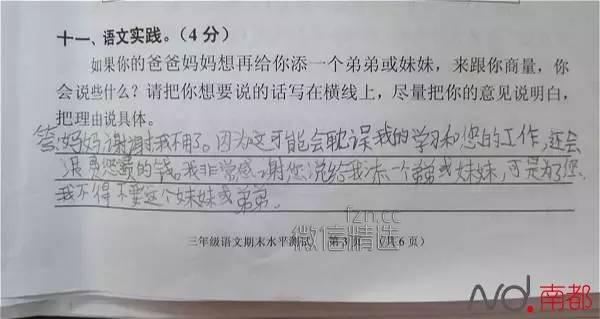 十一、语文实践。（4分）
如果你的爸爸妈妈想再给你添一个弟弟或妹妹，来跟你商量，你
会说些什么？请把你想要说的话写在横线上，尽量把你的意见说明白，
把理由说具体。
答：妈妈谢谢我不用了。因为这可能会耽误我的学习和您的工作，还会
浪费您的钱。我非常感谢您说给我添一个弟弟或妹妹，可是为了您，
我不得不要这个妹妹或弟弟。
fzn.cc
微信精选
三年级语文期末水平测试 第3页 （共6页）
nd.南都